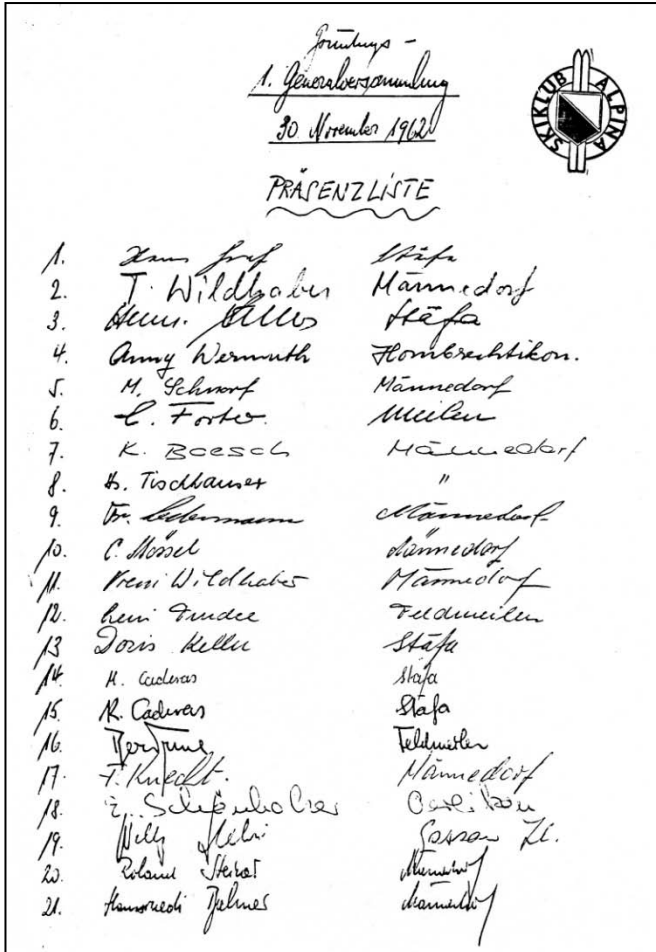 Gründungs -
1. Generalversammlung
30. November 1962
SKIKLUB ALPINA
PRÄSENZLISTE
1. Hans Graf Stäfa
2. T. Wildhaber Männedorf
3. Stäfa
4. Anny Wermuth Hombrechtikon.
5. M. Schnorf Männedorf
6. Forter. Meilen
7. K. Boesch Männedorf
8. Hs. Tischhauser "
9. Männedorf
10. C. Stössel Männedorf
11. Vreni Wildhaber Männedorf
12. Feldmeilen
13 Doris Keller Stäfa
14. M. Caderas Stäfa
15. R. Caderas Stäfa
16. Feldmeilen
17. T. Knecht. Männedorf
18. E. Schönholzer Oerlikon
19. Willy Gossau ZH.
20. Roland Steiner Männedorf
21. Hansruedi Männedorf